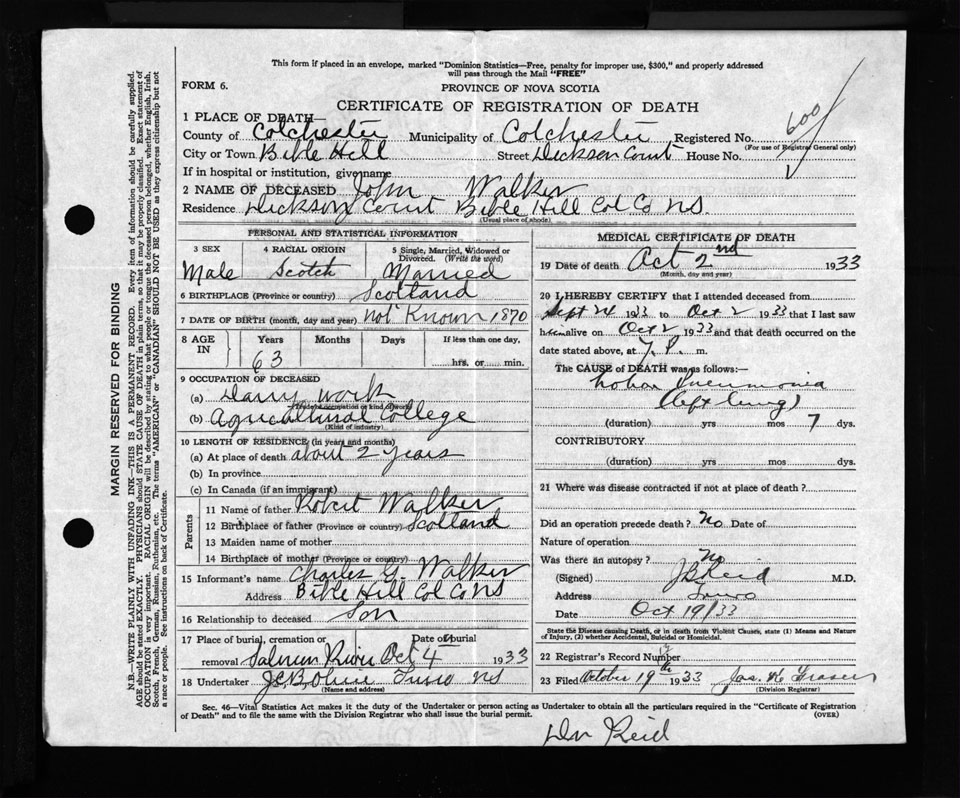 This form if placed in an envelope, marked "Dominion Statistics—Free, penalty for improper use, $300," and properly addressed
will pass through the Mail "FREE"
FORM 6.
PROVINCE OF NOVA SCOTIA
CERTIFICATE OF REGISTRATION OF DEATH
600
1 PLACE OF DEATH—
County of Colchester Municipality of Colchester Registered No.
(For use of Registrar General only)
City or Town Bible Hill Street Dickson Court House No.
If in hospital or institution, give name
2 NAME OF DECEASED John Walker
Residence Dickson Court Bible Hill Col Co N.S.
(Usual place of abode)
PERSONAL AND STATISTICAL INFORMATION
3 SEX 4 RACIAL ORIGIN 5 Single, Married, Widowed or
Divorced. (Write the word)
Male Scotch Married
6 BIRTHPLACE (Province or country) Scotland
7 DATE OF BIRTH (month, day and year) not Known 1870
8 AGE IN Years Months Days If less than one day,
63 hrs. or min.
9 OCCUPATION OF DECEASED
(a) Dairy work
(Trade, occupation or kind of work)
(b) Agricultural College
(Kind of industry)
10 LENGTH OF RESIDENCE (in years and months)
(a) At place of death about 2 years
(b) In province
(c) In Canada (if an immigrant)
Parents
11 Name of father Robert Walker
12 Birthplace of father (Province or country) Scotland
13 Maiden name of mother
14 Birthplace of mother (Province or country)
15 Informant's name Charles G. Walker
Address Bible Hill Col Co NS
16 Relationship to deceased Son
17 Place of burial, cremation or Date of burial
removal Salmon River Oct 4 1933
18 Undertaker Truro NS
(Name and address)
MEDICAL CERTIFICATE OF DEATH
19 Date of death Oct 2nd 1933
(Month, day and year)
20 I HEREBY CERTIFY that I attended deceased from
Sept 24 1933 to Oct 2 1933 that I last saw
him alive on Oct 2 1933 and that death occurred on the
date stated above, at 7 P. m.
The CAUSE of DEATH was as follows:—
Lobar Pneumonia
(left lung)
(duration) yrs mos 7 dys.
CONTRIBUTORY
(duration) yrs. mos. dys.
21 Where was disease contracted if not at place of death?
Did an operation precede death? No Date of
Nature of operation
Was there an autopsy? No
(Signed) J B Reid M.D.
Address Truro
Date Oct 19/33
State the Disease causing Death, or in death from Violent Causes, state (1) Means and Nature
of Injury, (2) whether Accidental, Suicidal or Homicidal.
22 Registrar's Record Number
23 Filed October 19th 1933 Jas. K Fraser
(Division Registrar)
Sec. 46—Vital Statistics Act makes it the duty of the Undertaker or person acting as Undertaker to obtain all the particulars required in the "Certificate of Registration
of Death" and to file the same with the Division Registrar who shall issue the burial permit.
(OVER)
Dr Reid
MARGIN RESERVED FOR BINDING
N.B.—WRITE PLAINLY WITH UNFADING INK—THIS IS A PERMANENT RECORD. Every item of information should be carefully supplied.
AGE should be stated EXACTLY. PHYSICIANS should STATE CAUSE OF DEATH in plain terms, so that it may be properly classified. Exact statement of
OCCUPATION is very important. RACIAL ORIGIN will be described by stating to what people or tongue the deceased person belonged, whether English, Irish,
Scotch, French, German, Russian, Ruthenian, etc. The terms "AMERICAN" or "CANADIAN" SHOULD NOT BE USED as they express citizenship but not
a race or people. See instructions on back of Certificate.